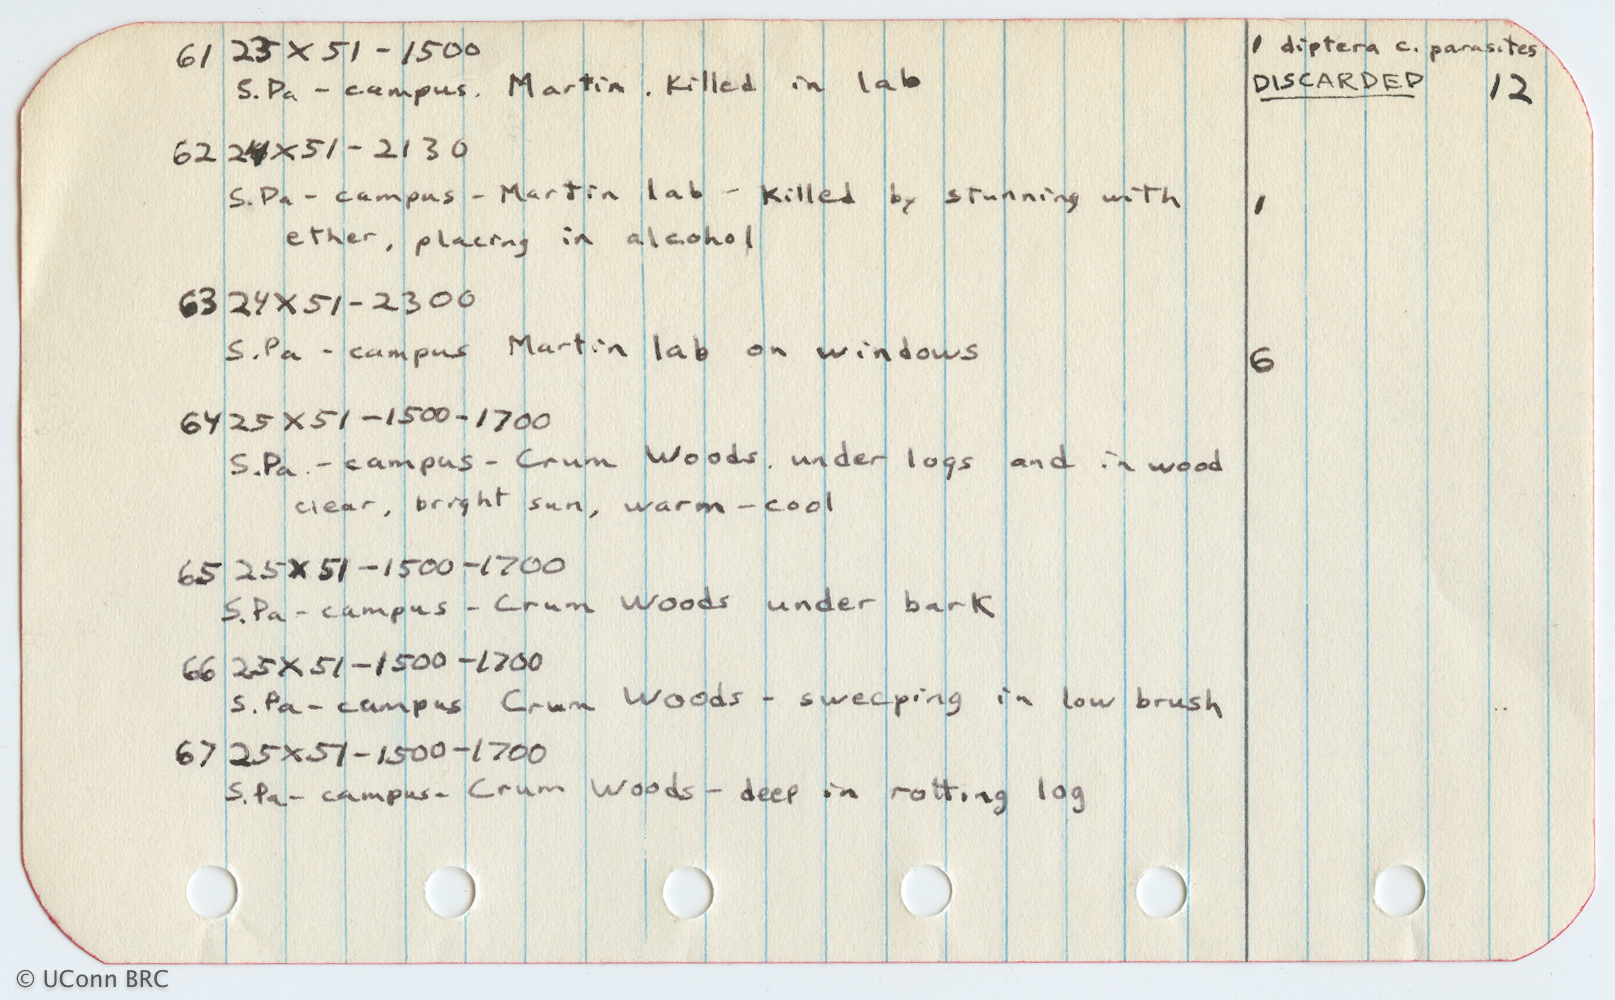 61 23 X 51 - 1500
1 diptera c. parasites
S.Pa - campus. Martin. Killed in lab
DISCARDED 12
62 24 X 51 - 2130
S.Pa - campus - Martin lab - Killed by stunning with
1
ether, placing in alcohol
63 24 X 51 - 2300
S.Pa - campus Martin lab on windows
6
64 25 X 51 - 1500 - 1700
S.Pa. - campus - Crum Woods. under logs and in wood
clear, bright sun, warm - cool
65 25 X 51 - 1500 - 1700
S.Pa - campus - Crum Woods under bark
66 25 X 51 - 1500 - 1700
S.Pa - campus Crum Woods - sweeping in low brush
67 25 X 51 - 1500 - 1700
S.Pa - campus - Crum Woods - deep in rotting log
© UConn BRC